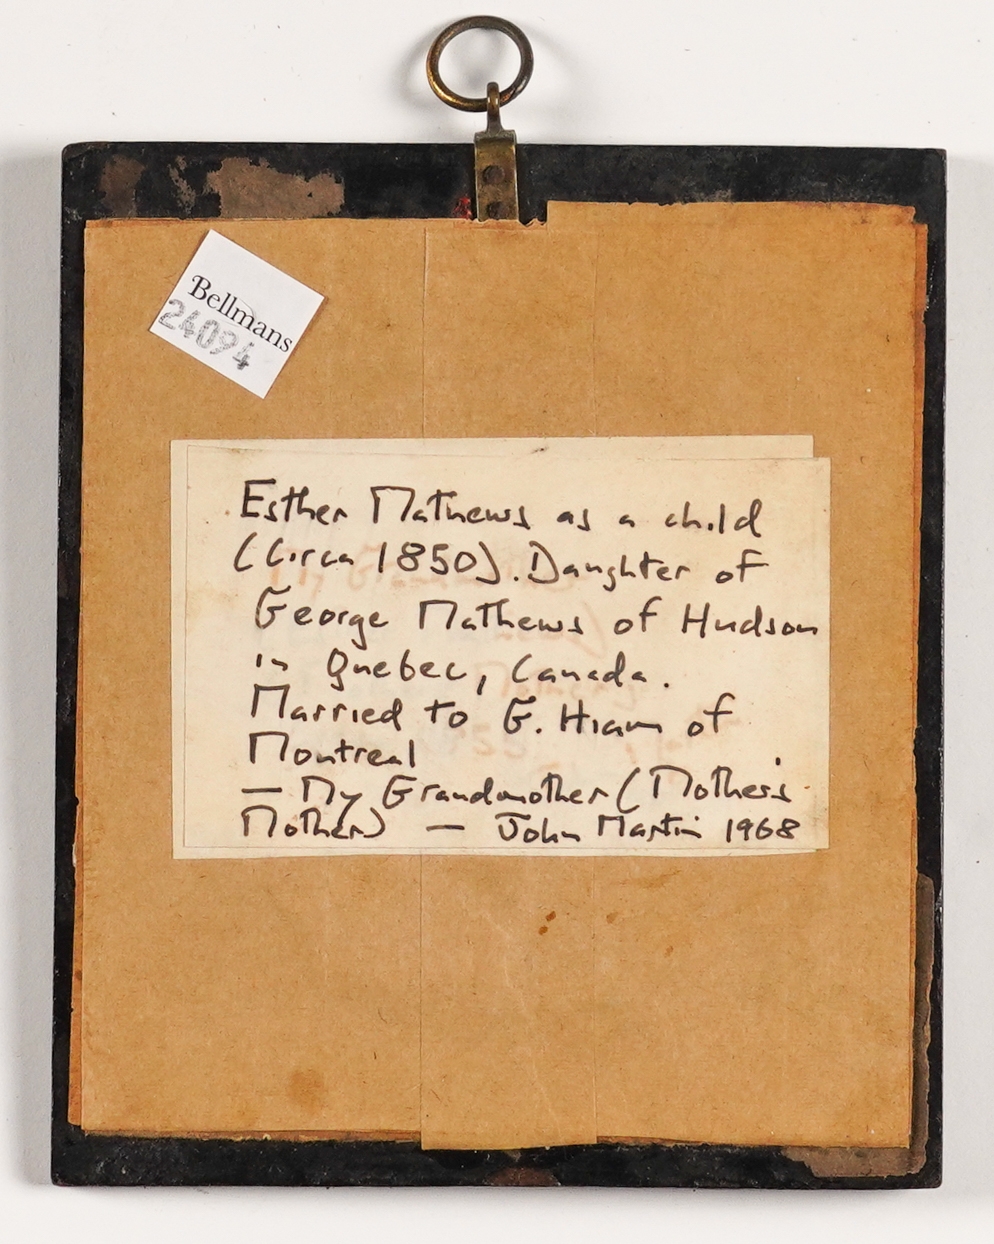 Bellmans
24094
Esther Mathews as a child
(Circa 1850). Daughter of
George Mathews of Hudson
in Quebec, Canada.
Married to G. Hiam of
Montreal
— My Grandmother (Mother's
Mother) — John Martin 1968